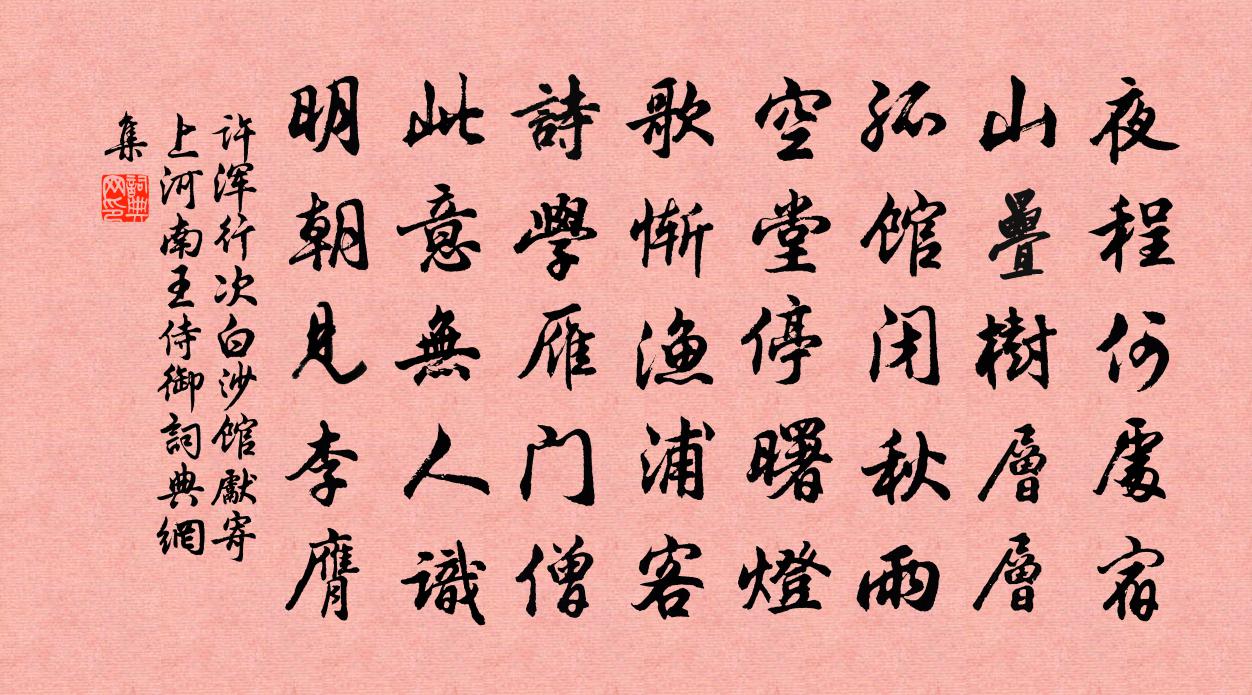 夜程何處宿
山疊樹層層
孤館闭秋雨
空堂停曙燈
歌慚漁浦客
詩學雁门僧
此意無人識
明朝見李膺
许浑行次白沙館獻寄
上河南王侍御詞典網
集
詞典
网印